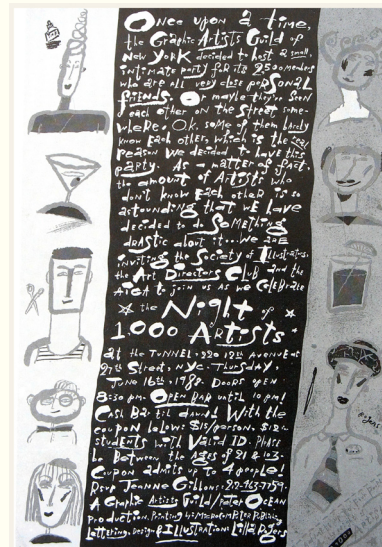 Once upon a time,
the Graphic Artists Guild of
New York decided to host a small,
intimate party for its 2500 members
who are all very close personal
friends. Or maybe they've seen
each other on the street some-
where. O.K. some of them barely
know each other, which is the real
reason we decided to have this
party. As a matter of fact,
the amount of Artists who
don't know each other is so
astounding that we have
decided to do something
drastic about it... We are
inviting the Society of Illustrators,
the Art Directors Club and the
AIGA to join us as we celebrate
the Night of
1000 Artists
at the Tunnel, 220 12th Avenue at
27th Street, NYC. Thursday,
June 16th, 1988. Doors open
8:30 pm. Open bar until 10pm!
Cash Bar til dawn! With the
coupon below: $15/person, $12
students with valid ID. Please
be between the ages of 21 & 103.
Coupon admits up to 4 people!
RSVP Jeanne Gibbons:
A Graphic Artists Guild/Peter Ocean
Production. Printing by
Lettering, Design & Illustration: Lilla Rogers
Rogers